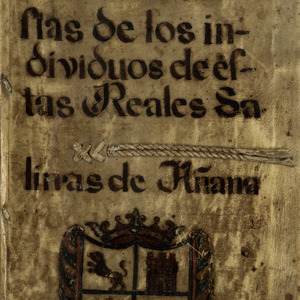 stas de los in-
dividuos de ès-
tas Reales Sa
linas de Añana